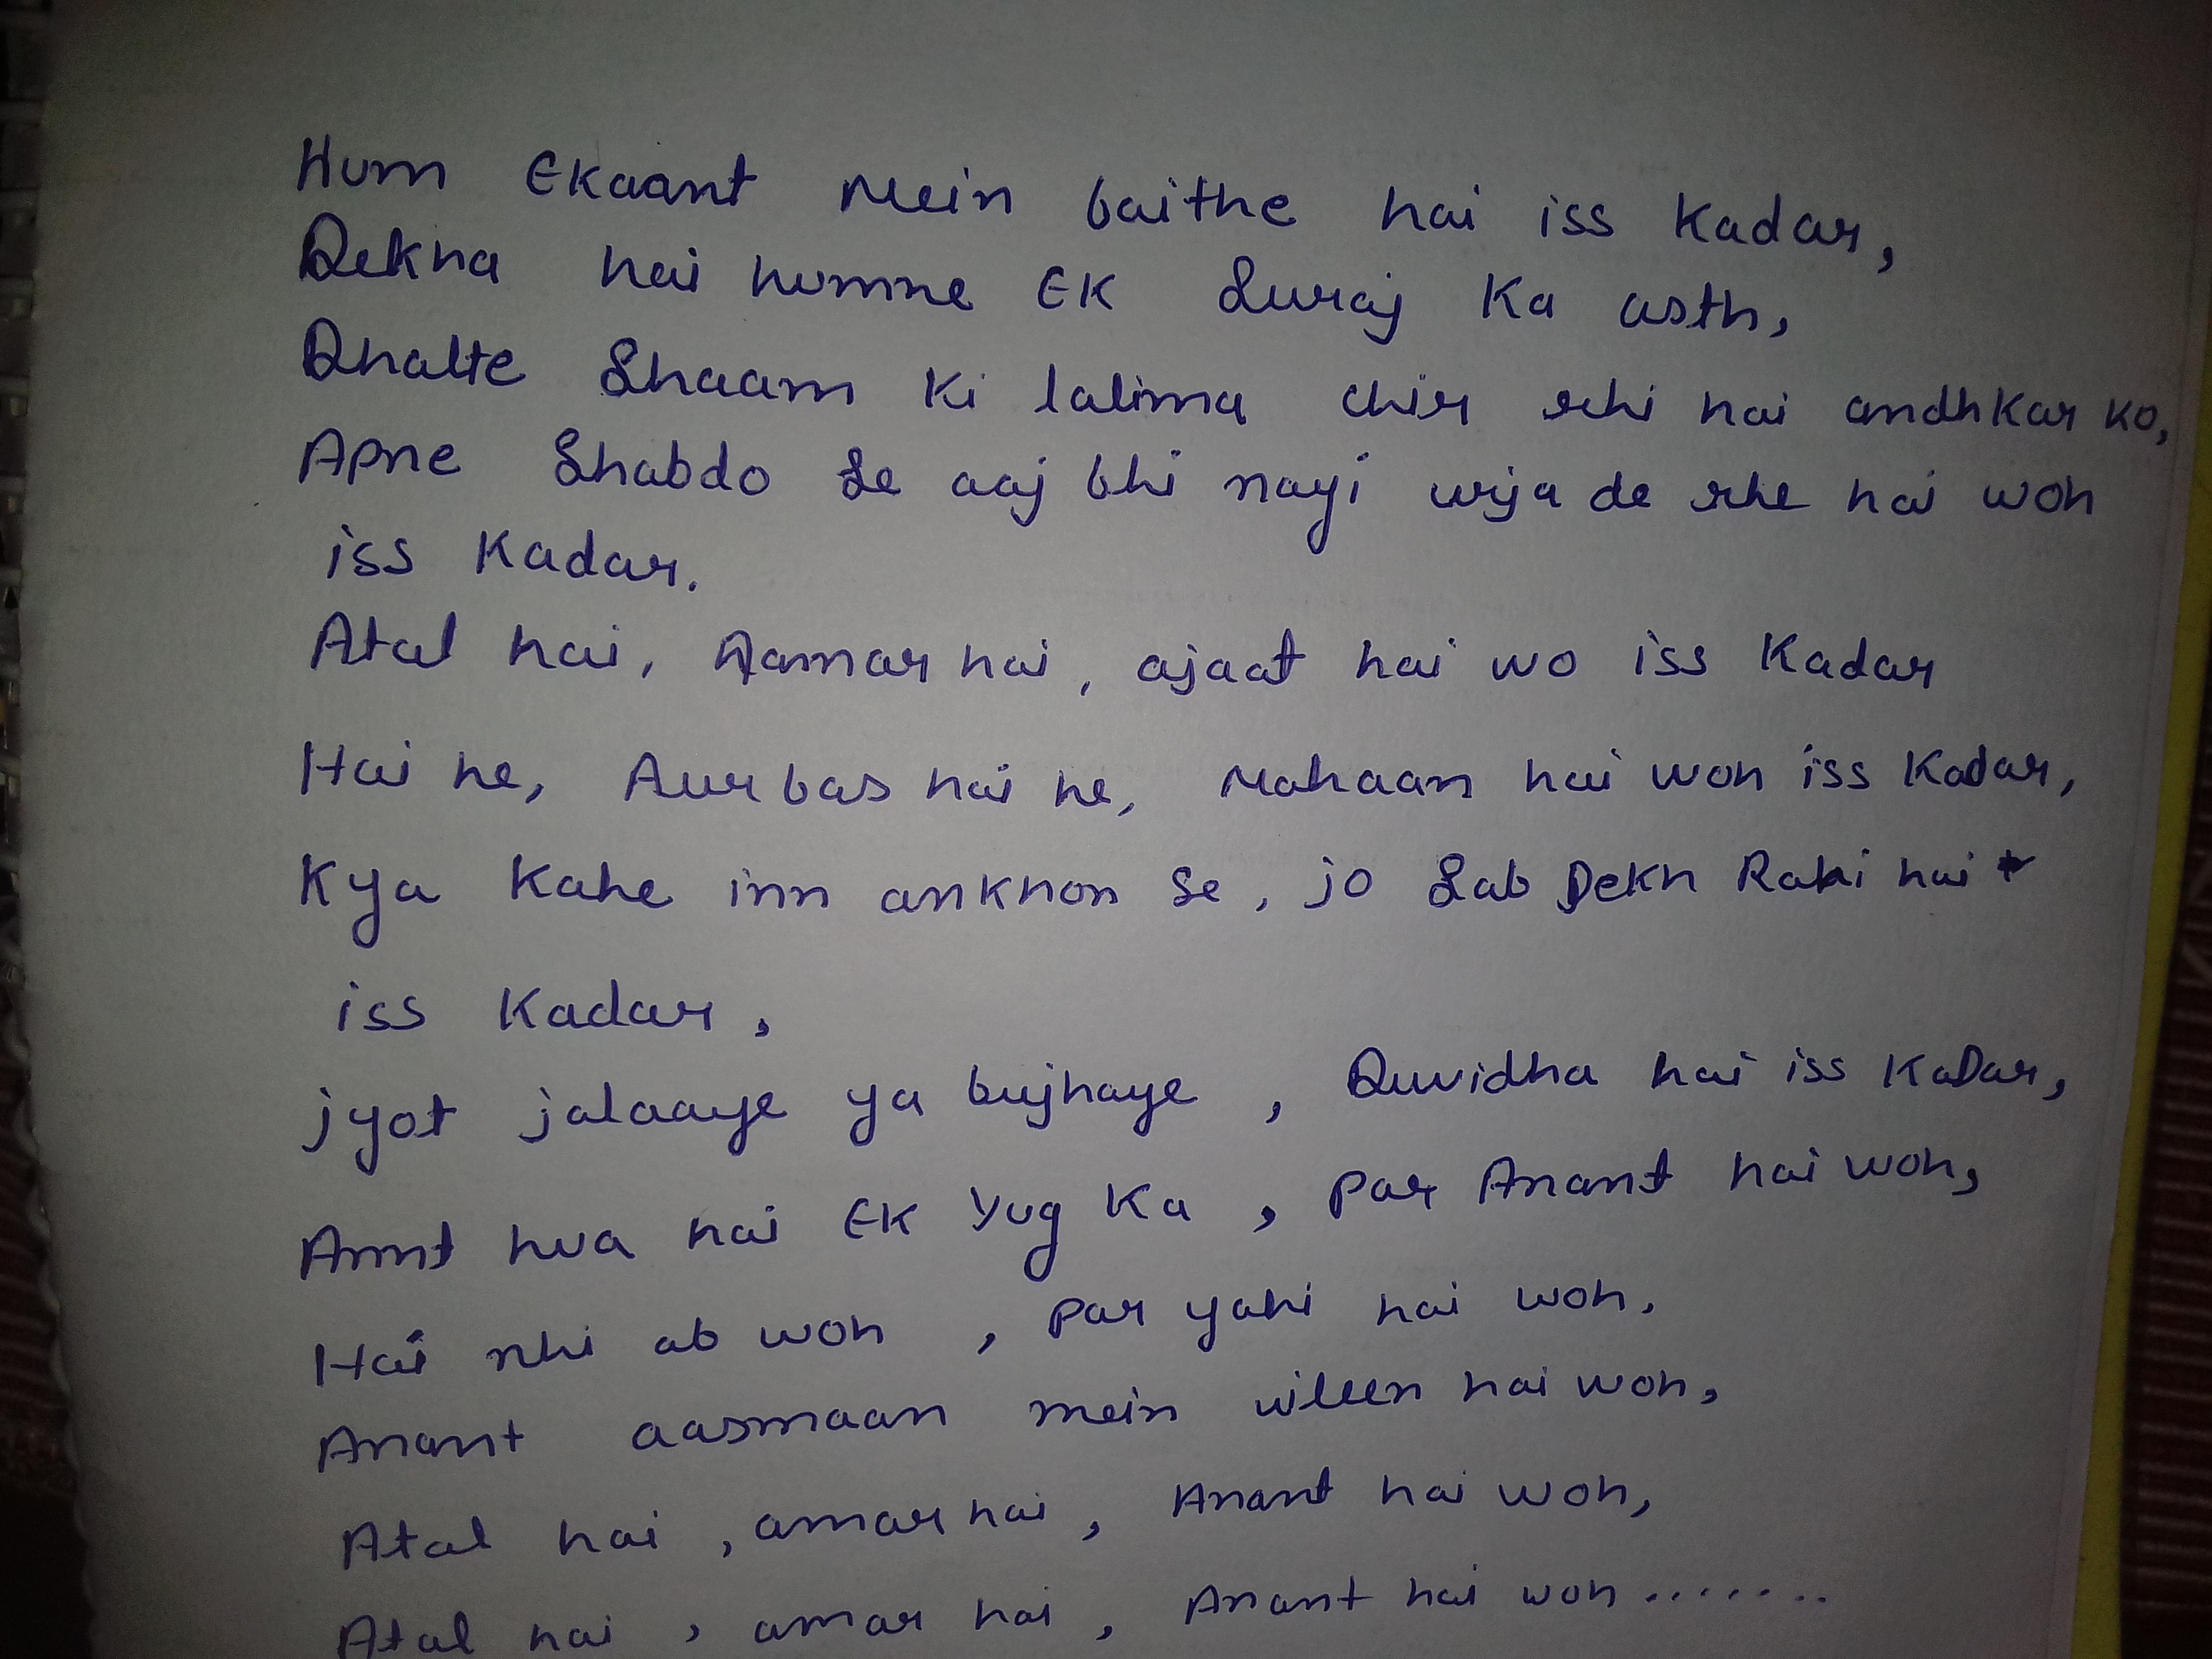 Hum Ekaant Mein baithe hai iss Kadar,
Dekha hai humne Ek Suraj Ka asth,
Dhalte Shaam Ki lalima chir rhi hai andhkar ko,
Apne Shabdo se aaj bhi nayi urja de rhe hai woh
iss Kadar.
Atal hai, Aamar hai, ajaat hai wo iss Kadar
Hai he, Aur bas hai he, Mahaan hai woh iss Kadar,
Kya Kahe inn ankhon se, jo Sab Dekh Rahi hai
iss Kadar,
jyot jalaaye ya bujhaye, Duvidha hai iss KaDar,
Annt hua hai Ek Yug Ka, par Anant hai woh,
Hai nhi ab woh, par yahi hai woh.
Anant aasmaan mein vileen hai woh,
Atal hai, amar hai, Anant hai woh,
Atal hai, amar hai, Anant hai woh.......